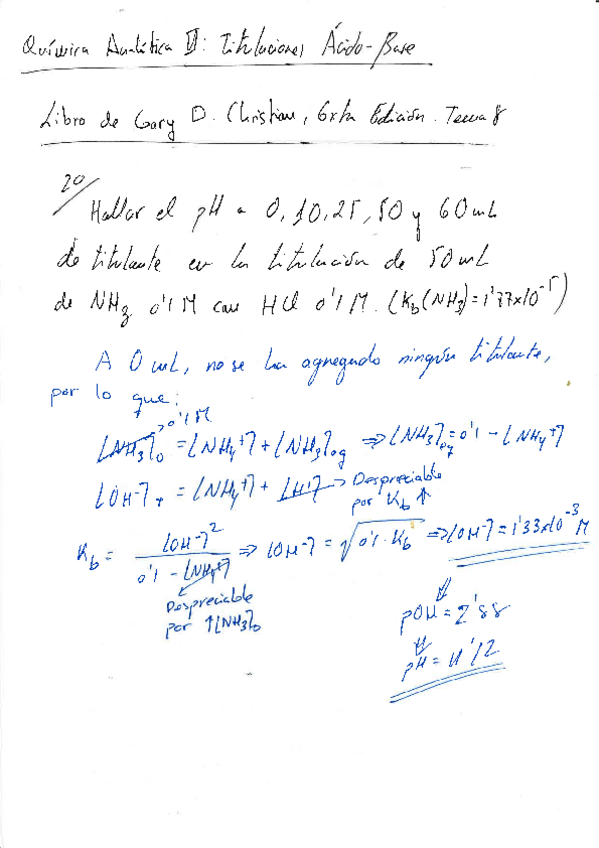 Química Analítica II: Titulaciones Ácido-Base
Libro de Gary D. Christian, 6xta Edición. Tema 8
20/ Hallar el pH a 0, 10, 25, 50 y 60 mL
de titulante en la titulación de 50 mL
de NH3 0'1 M con HCl 0'1 M. (Kb(NH3)=1'77x10^-5)
A 0 mL, no se ha agregado ningún titulante,
por lo que:
0'1 M
[NH3]0 = [NH4+] + [NH3]eq ⇒ [NH3]eq = 0'1 - [NH4+]
[OH-]T = [NH4+] + [H+] → Despreciable
por Kb ↑
Kb = [OH-]^2 / (0'1 - [NH4+]) ⇒ [OH-] = √(0'1 · Kb) ⇒ [OH-] = 1'33x10^-3 M
Despreciable
por ↑[NH3]0
pOH = 2'88
pH = 11'12